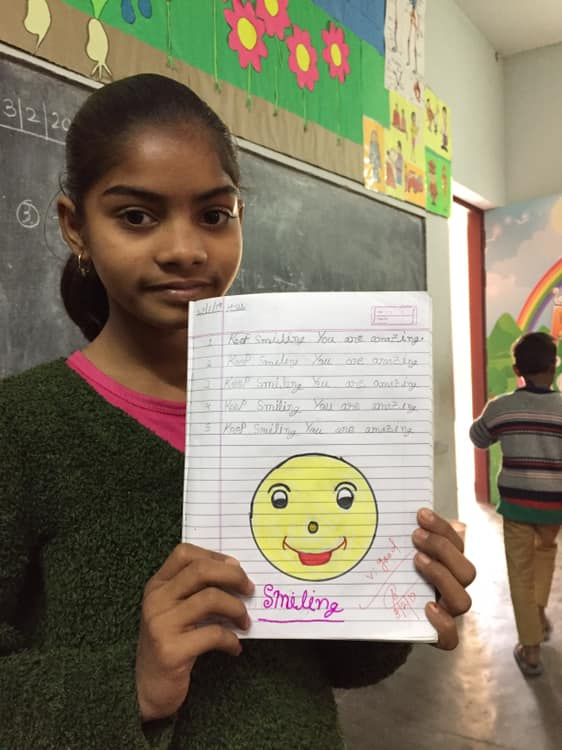 3/2/20
③
H.W
1 Keep Smiling You are amazing.
2 Keep Smiling You are amazing
3 Keep Smiling You are amazing
4 Keep Smiling You are amazing
5 Keep Smiling You are amazing
v. good
Smiling